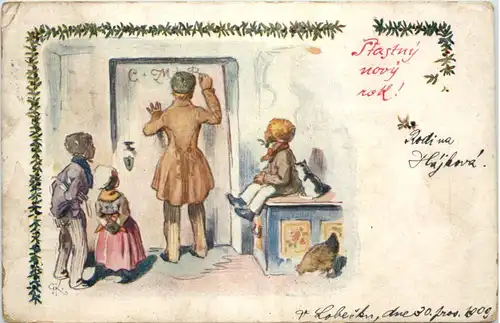 C + M + B
Šťastný
nový
rok!
Rodina
Hájková.
V Lobečku, dne 30. pros. 1909